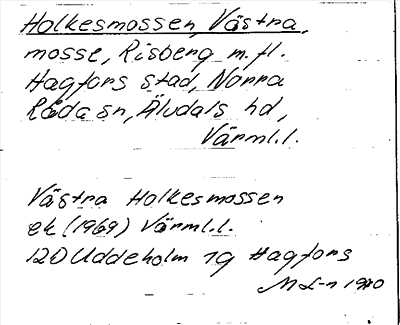 Holkesmossen, Västra,
mosse, Risberg m.fl.
Hagfors stad, Norra
Råda sn, Älvdals hd,
Värml.l.
Västra Holkesmossen
ek (1969) Värml.l.
12D Uddeholm 1g Hagfors